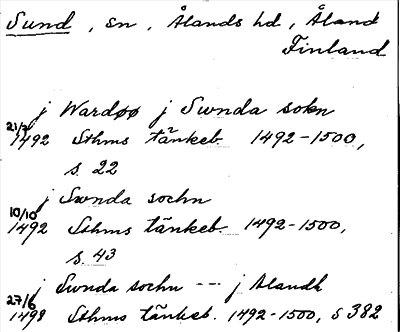 Sund, sn, Ålands hd, Åland
Finland
j Wardøø j Swnda sokn
21/7 1492 Sthms tänkeb. 1492-1500,
s. 22
j Swnda sochn
10/10 1492 Sthms tänkeb. 1492-1500,
s. 43
j Swnda sochn --- j Alandh
27/6 1498 Sthms tänkeb. 1492-1500, s 382